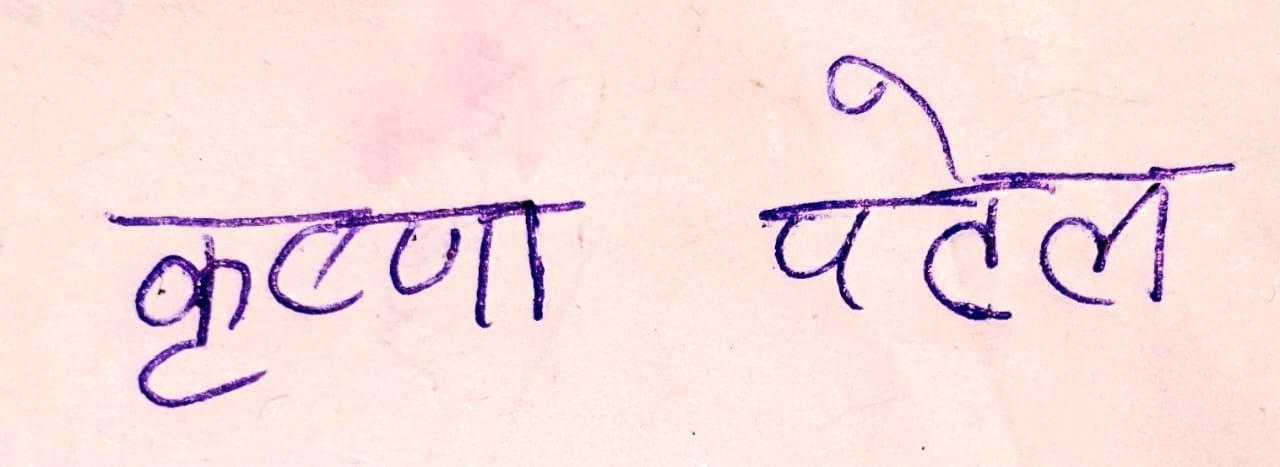 कृष्णा पटेल